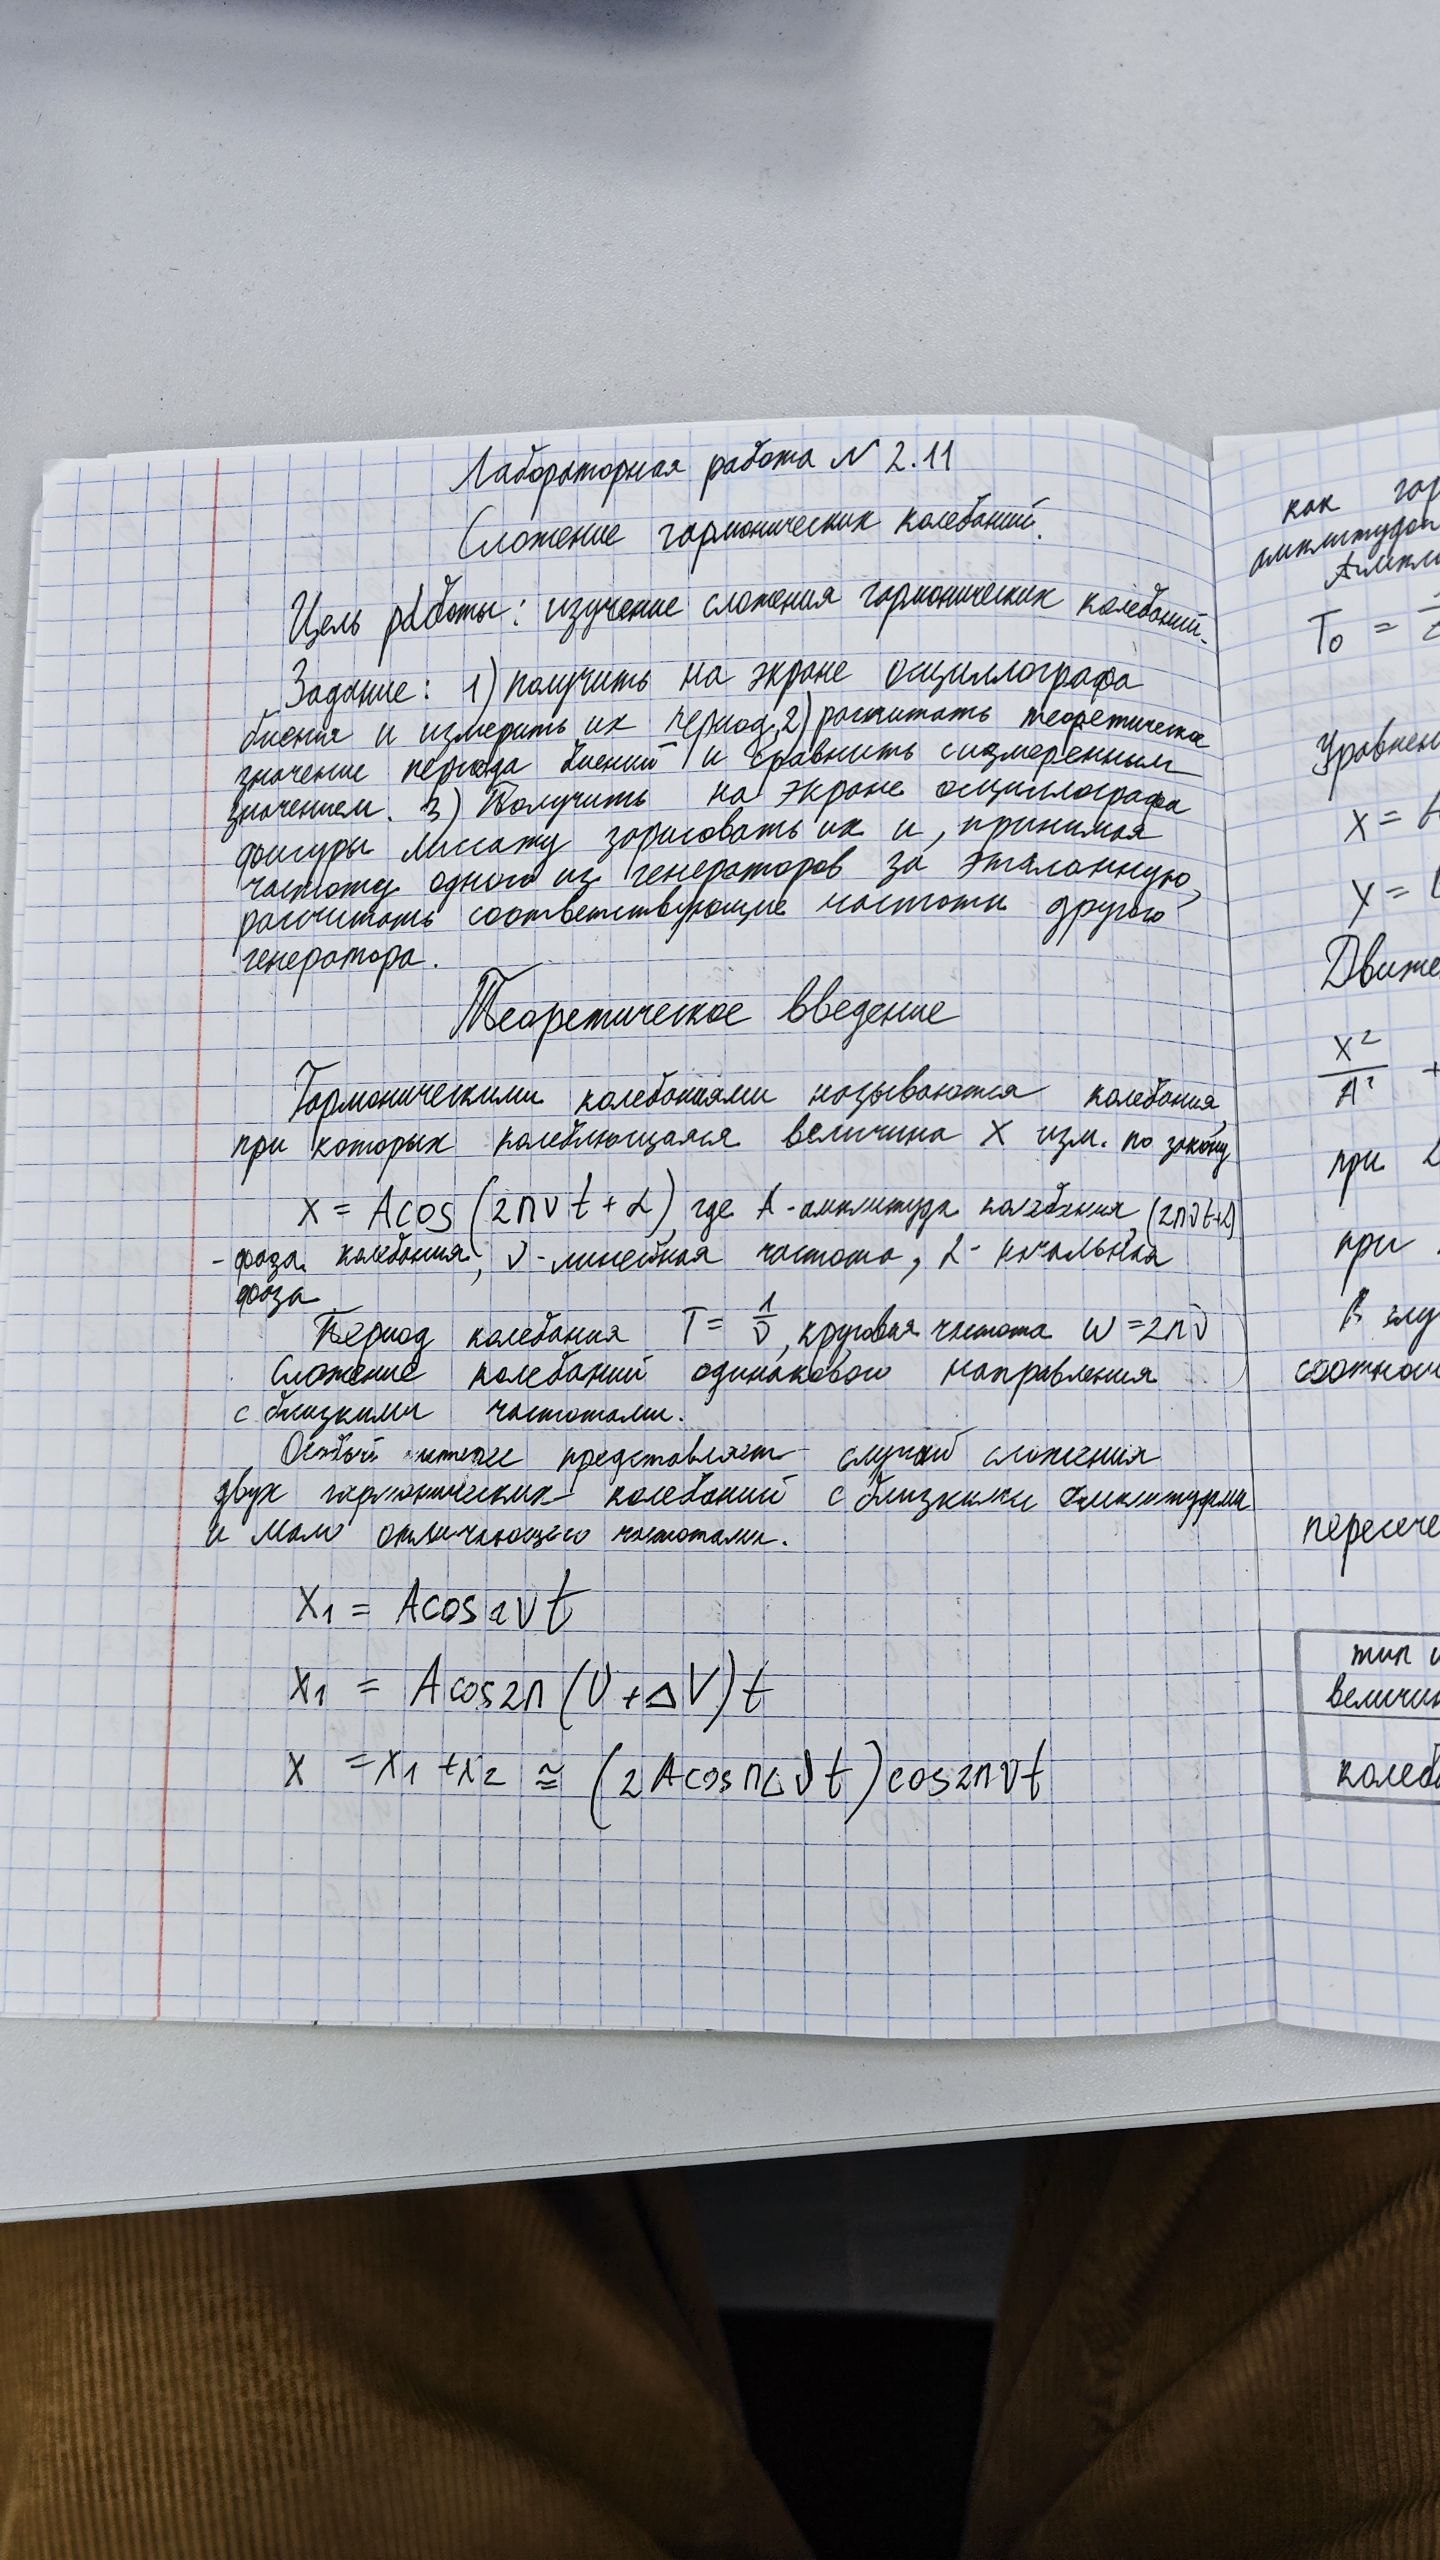 Лабораторная работа N 2.11
Сложение гармонических колебаний.
Цель работы: изучение сложения гармонических колебаний.
Задание: 1) получить на экране осциллографа
биения и измерить их период, 2) расчитать теоретическое
значение периода биений и сравнить с измеренным
значением. 3) Получить на экране осциллографа
фигуры Лиссажу зарисовать их и, принимая
частоту одного из генераторов за эталонную,
расчитать соответствующие частоты другого
генератора.
Теоретическое введение
Гармоническими колебаниями называются колебания,
при которых колеблющаяся величина X изм. по закону
X = Acos (2πν t + α), где A - амплитуда колебания, (2πνt+α)
- фаза колебания, ν - линейная частота, α - начальная
фаза
Период колебания T = 1/ν, круговая частота ω = 2πν
Сложение колебаний одинакового направления
с близкими частотами.
Особый представляет случай сложения
двух гармонических колебаний с близкими амплитудами
и мало отличающего частотами.
X1 = Acos2νt
X1 = Acos2π(ν+Δν)t
X = X1 + X2 ≅ (2AcosπΔνt)cos2πνt
как гар
амплитудой
Ампли
T0 =
Уравнен
X = A
y =
Движе
X²/A² +
при α
при
В слу
соотнош
пересече
тип и
величин
колеб